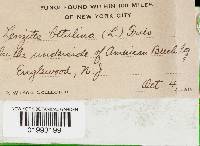 FUNGI FOUND WITHIN 100 MILES
OF NEW YORK CITY
Lenzites betulina (L.) Fries
on the underside of American Beech log
Englewood, N.J.
Oct 4
COLLECTOR
NEW YORK BOTANICAL GARDEN
01990199